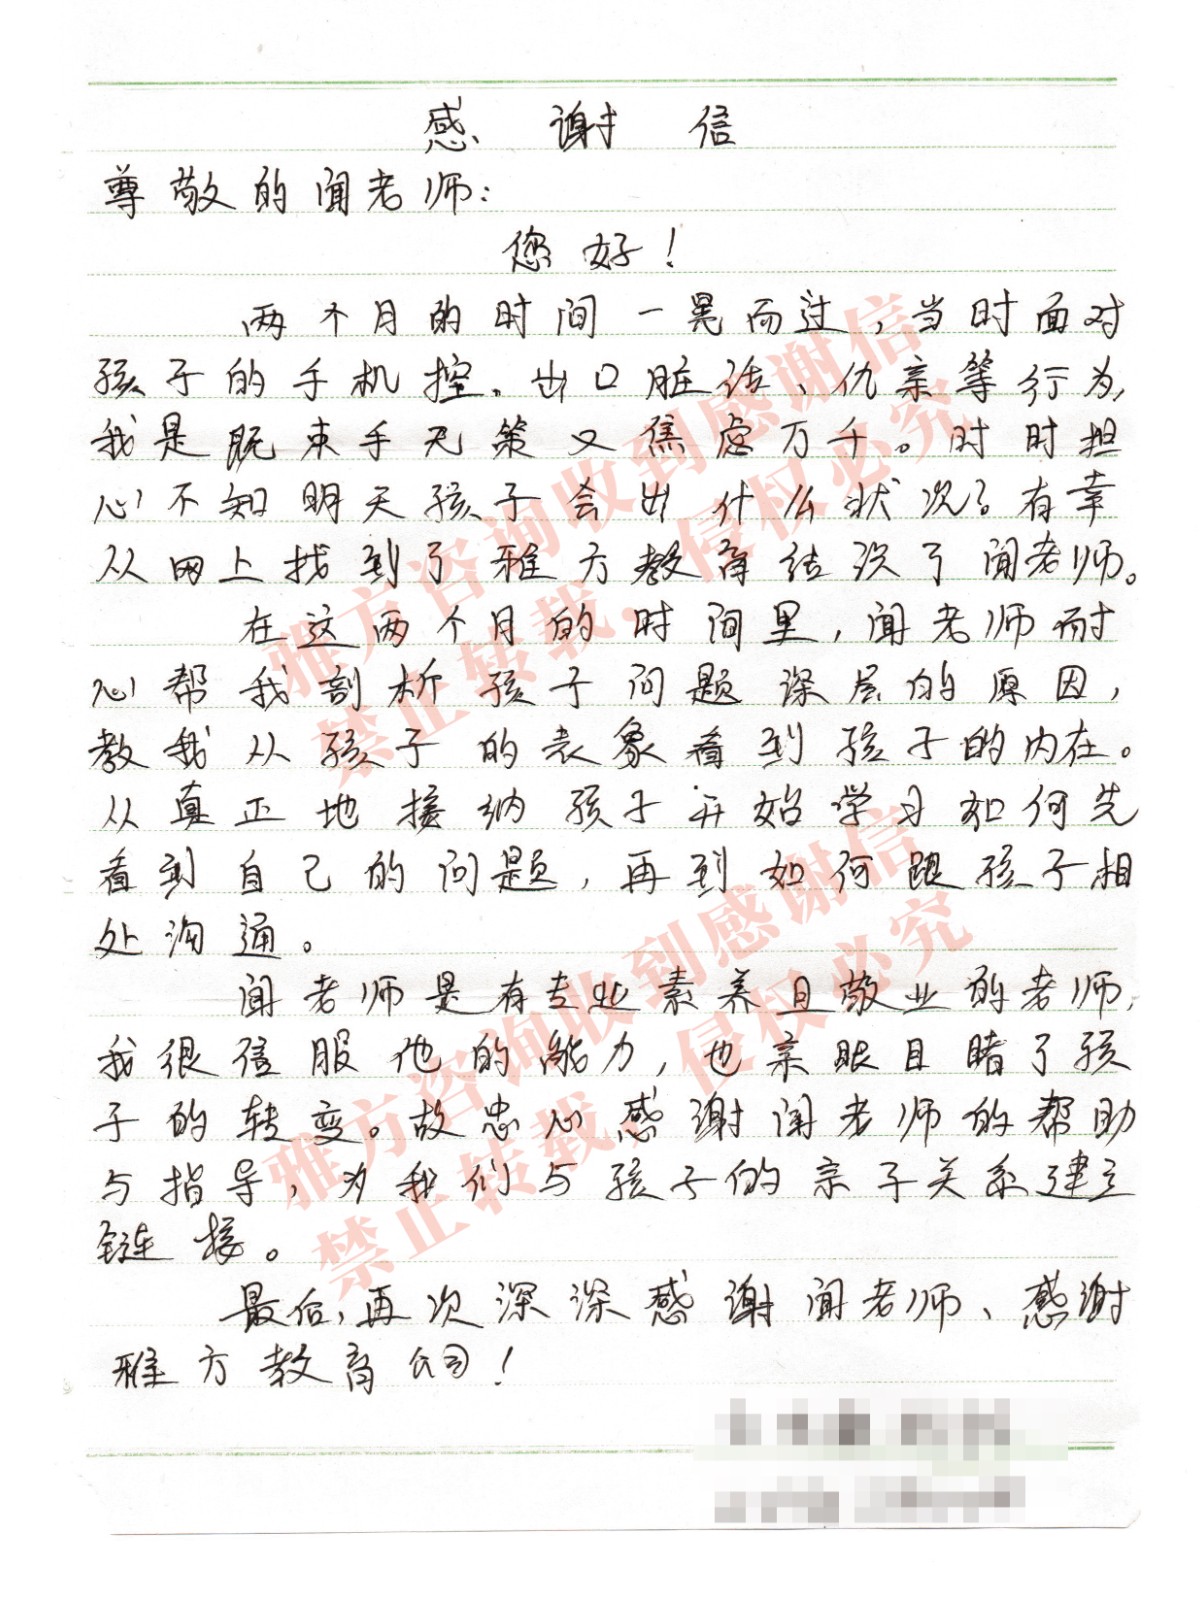 感谢信
尊敬的闻老师：
您好！
两个月的时间一晃而过，当时面对
孩子的手机控、出口脏话、仇亲等行为，
我是既束手无策又焦虑万千。时时担
心不知明天孩子会出什么状况？有幸
从网上找到了雅方教育结识了闻老师。
在这两个月的时间里，闻老师耐
心帮我剖析孩子问题深层的原因，
教我从孩子的表象看到孩子的内在。
从真正地接纳孩子开始学习如何先
看到自己的问题，再到如何跟孩子相
处沟通。
闻老师是有专业素养且敬业的老师，
我很信服他的能力，也亲眼目睹了孩
子的转变。故忠心感谢闻老师的帮助
与指导，为我们与孩子的亲子关系建立
链接。
最后，再次深深感谢闻老师、感谢
雅方教育公司！
雅方咨询收到感谢信
禁止转载，侵权必究
雅方咨询收到感谢信
禁止转载，侵权必究